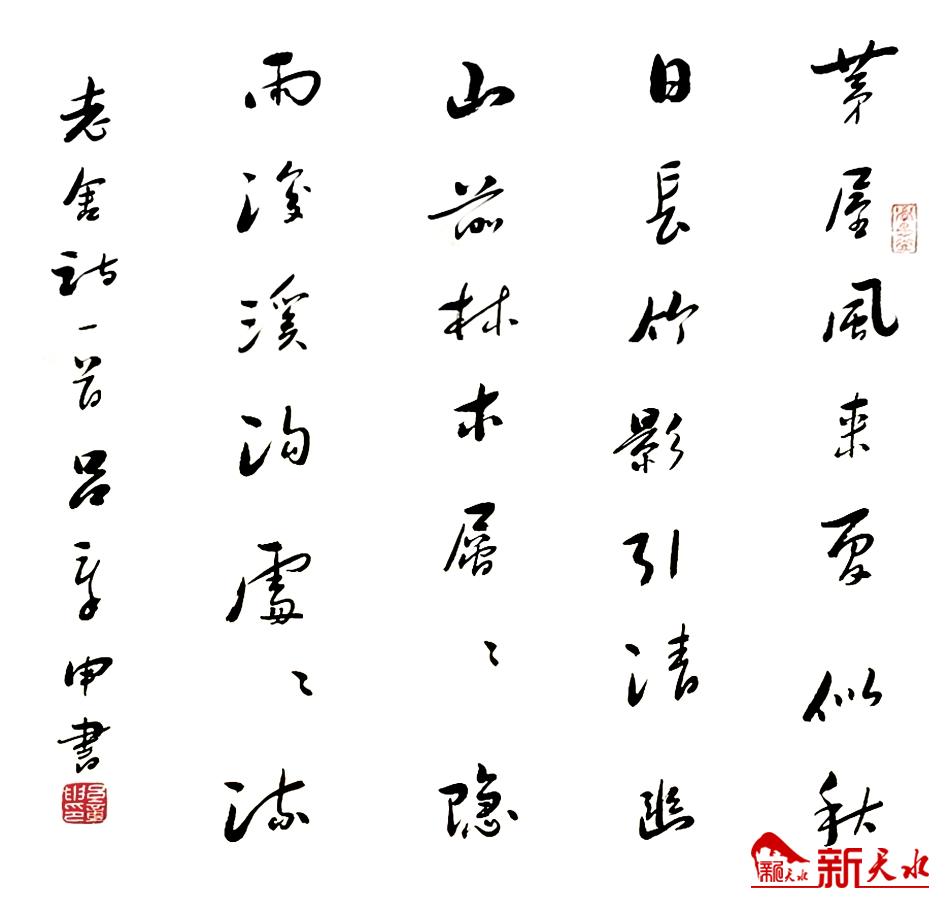 茅屋風来夏似秋
日長竹影引清幽
山前林木層〻隐
雨後溪沟處〻流
老舍詩一首吕章申書
新天水